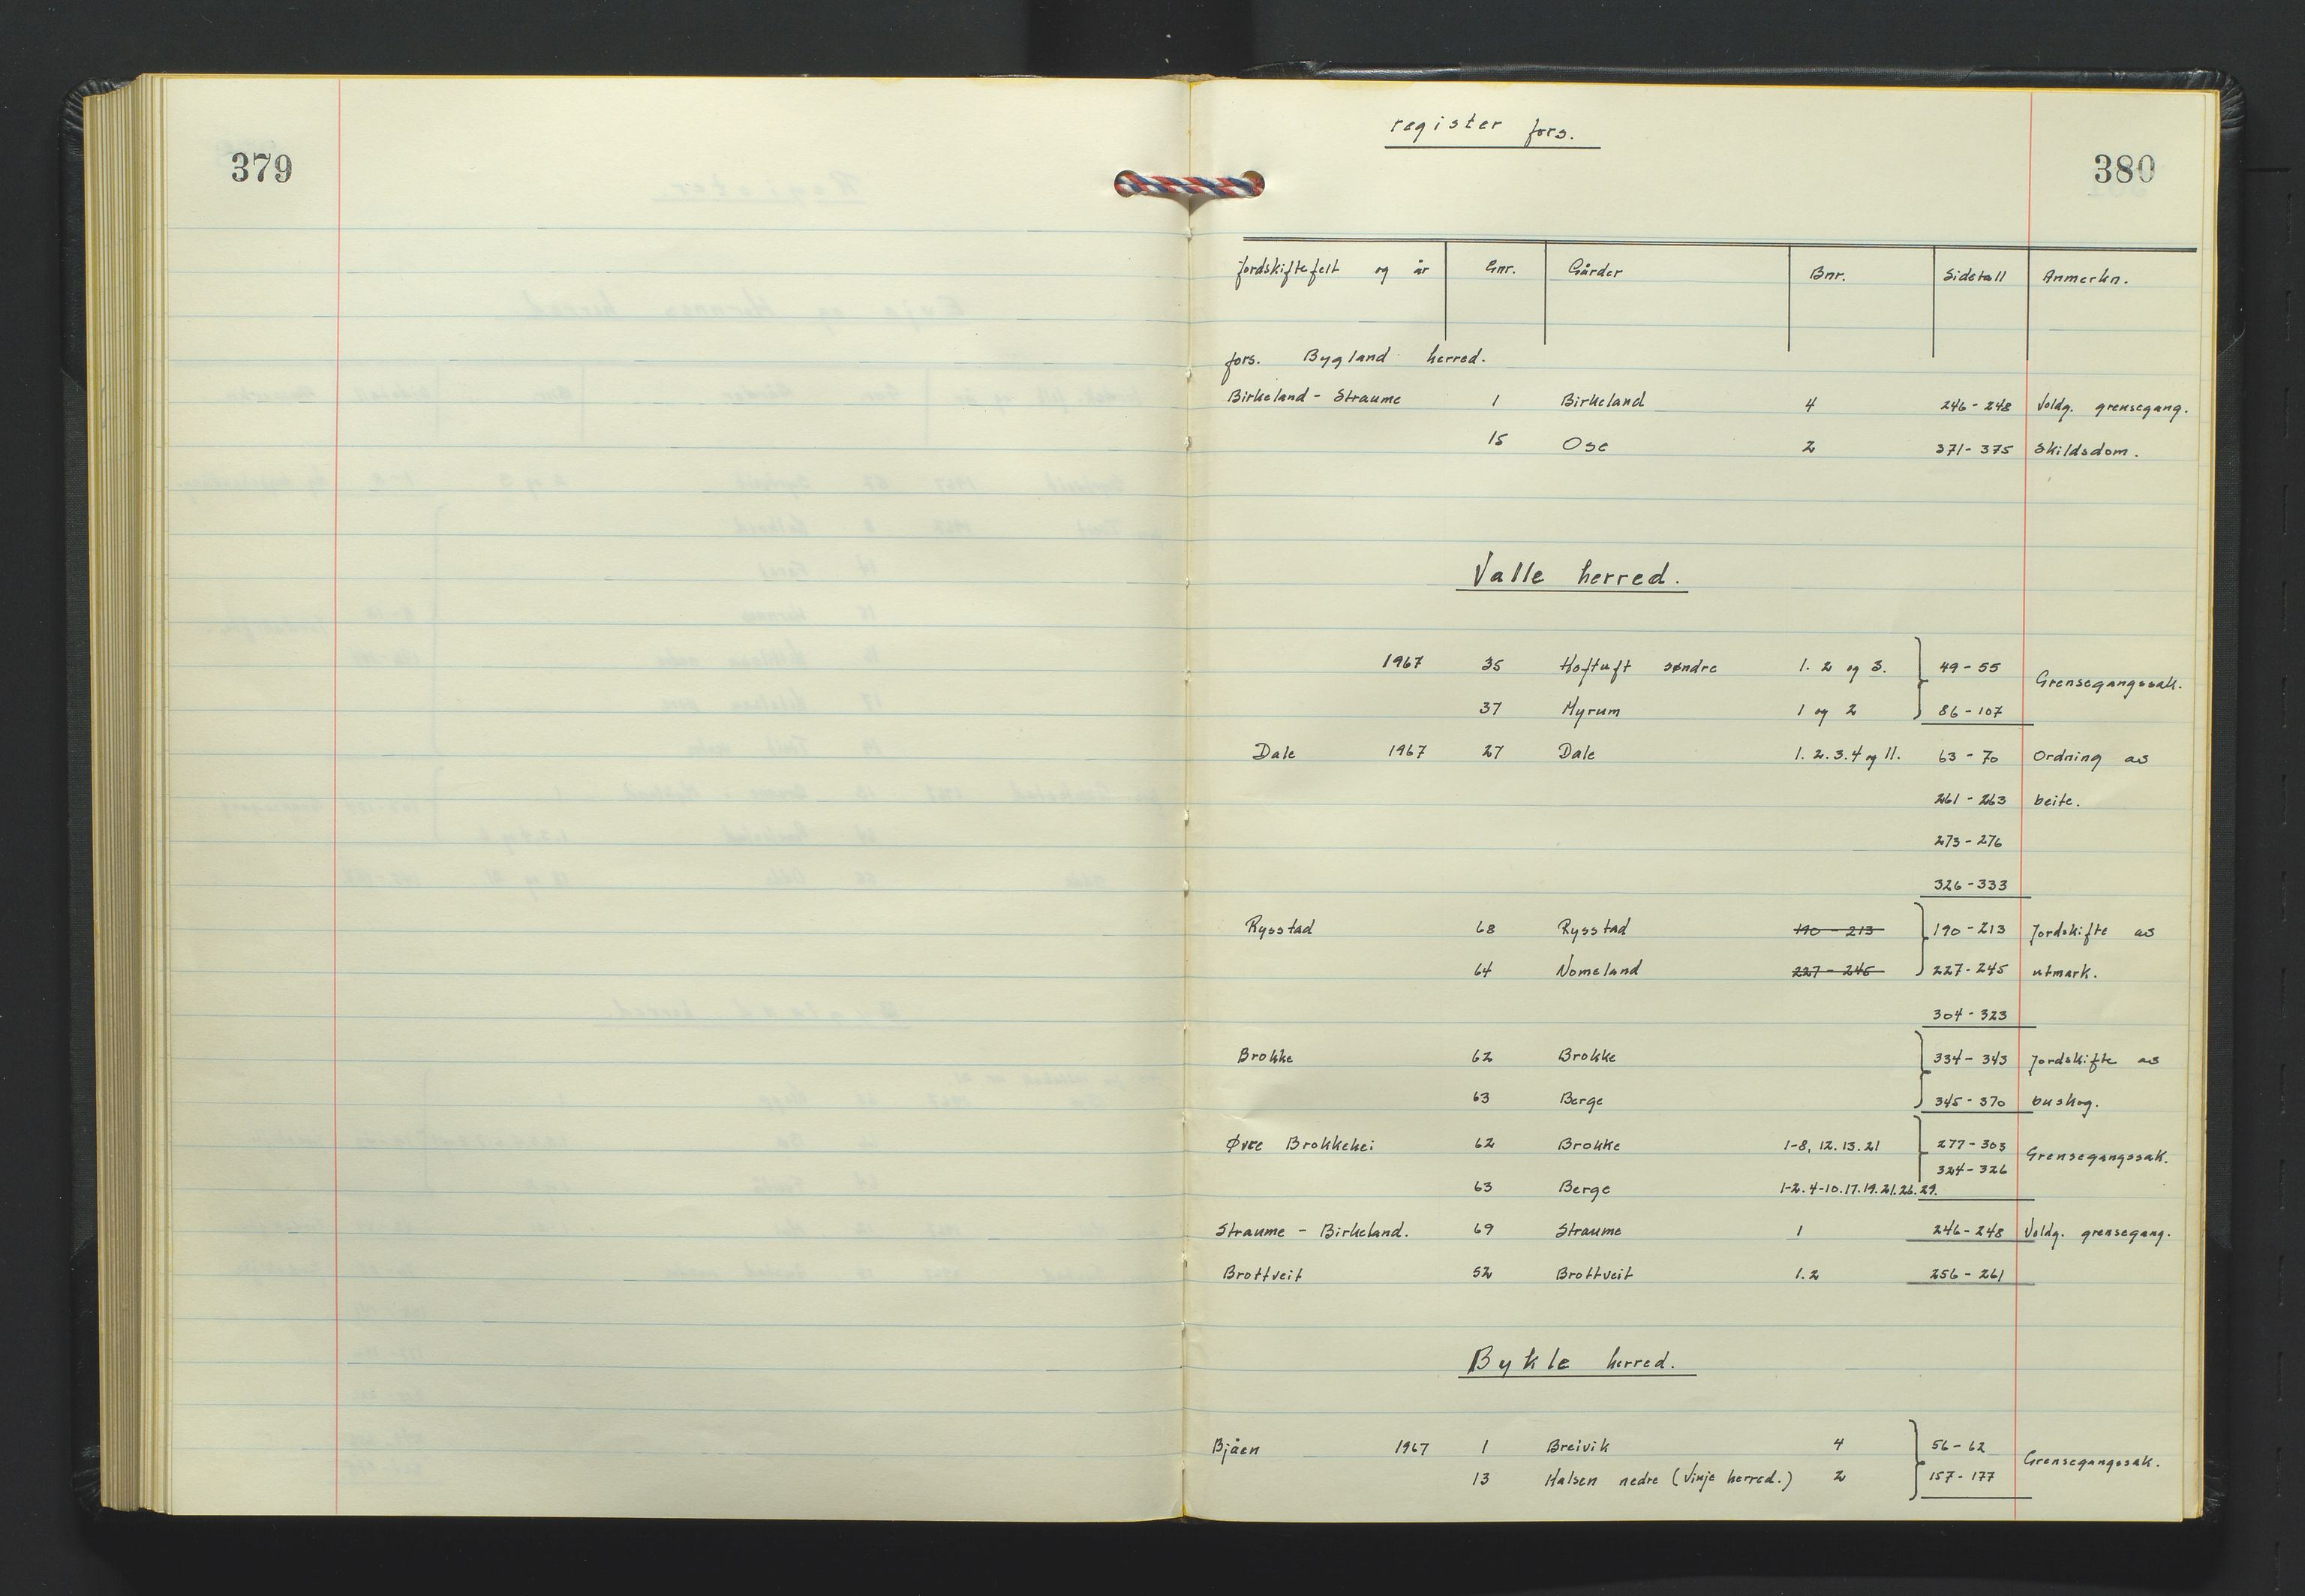 379
register fors.
380
Jordskiftefelt og år Gnr. Gårder Bnr. Sidetall Anmerkn.
fors. Bygland herred.
Birkeland - Straume 1 Birkeland 4 246-248 Voldg. grensegang.
15 Ose 2 371-375 Skildsdom.
Valle herred.
1967 35 Hoftuft søndre 1. 2 og 3. 49-55 Grensegangssak.
37 Myrum 1 og 2 86-107
Dale 1967 27 Dale 1. 2. 3. 4 og 11. 63-70 Ordning av
261-263 beite.
273-276
326-333
Rysstad 68 Rysstad 190-213 190-213 Jordskifte av
64 Nomeland 227-245 227-245 utmark.
304-323
Brokke 62 Brokke 334-343 Jordskifte av
63 Berge 345-370 buskog.
Øvre Brokkehei 62 Brokke 1-8, 12. 13. 21 277-303 Grensegangssak.
324-326
63 Berge 1-2. 4-10. 17. 19. 21. 26. 29.
Straume - Birkeland. 69 Straume 1 246-248 Voldg. grensegang.
Brottveit 52 Brottveit 1. 2 256-261
Bykle herred.
Bjåen 1967 1 Breivik 4 56-62 Grensegangssak.
13 Halsen nedre (Vinje herred.) 2 157-177